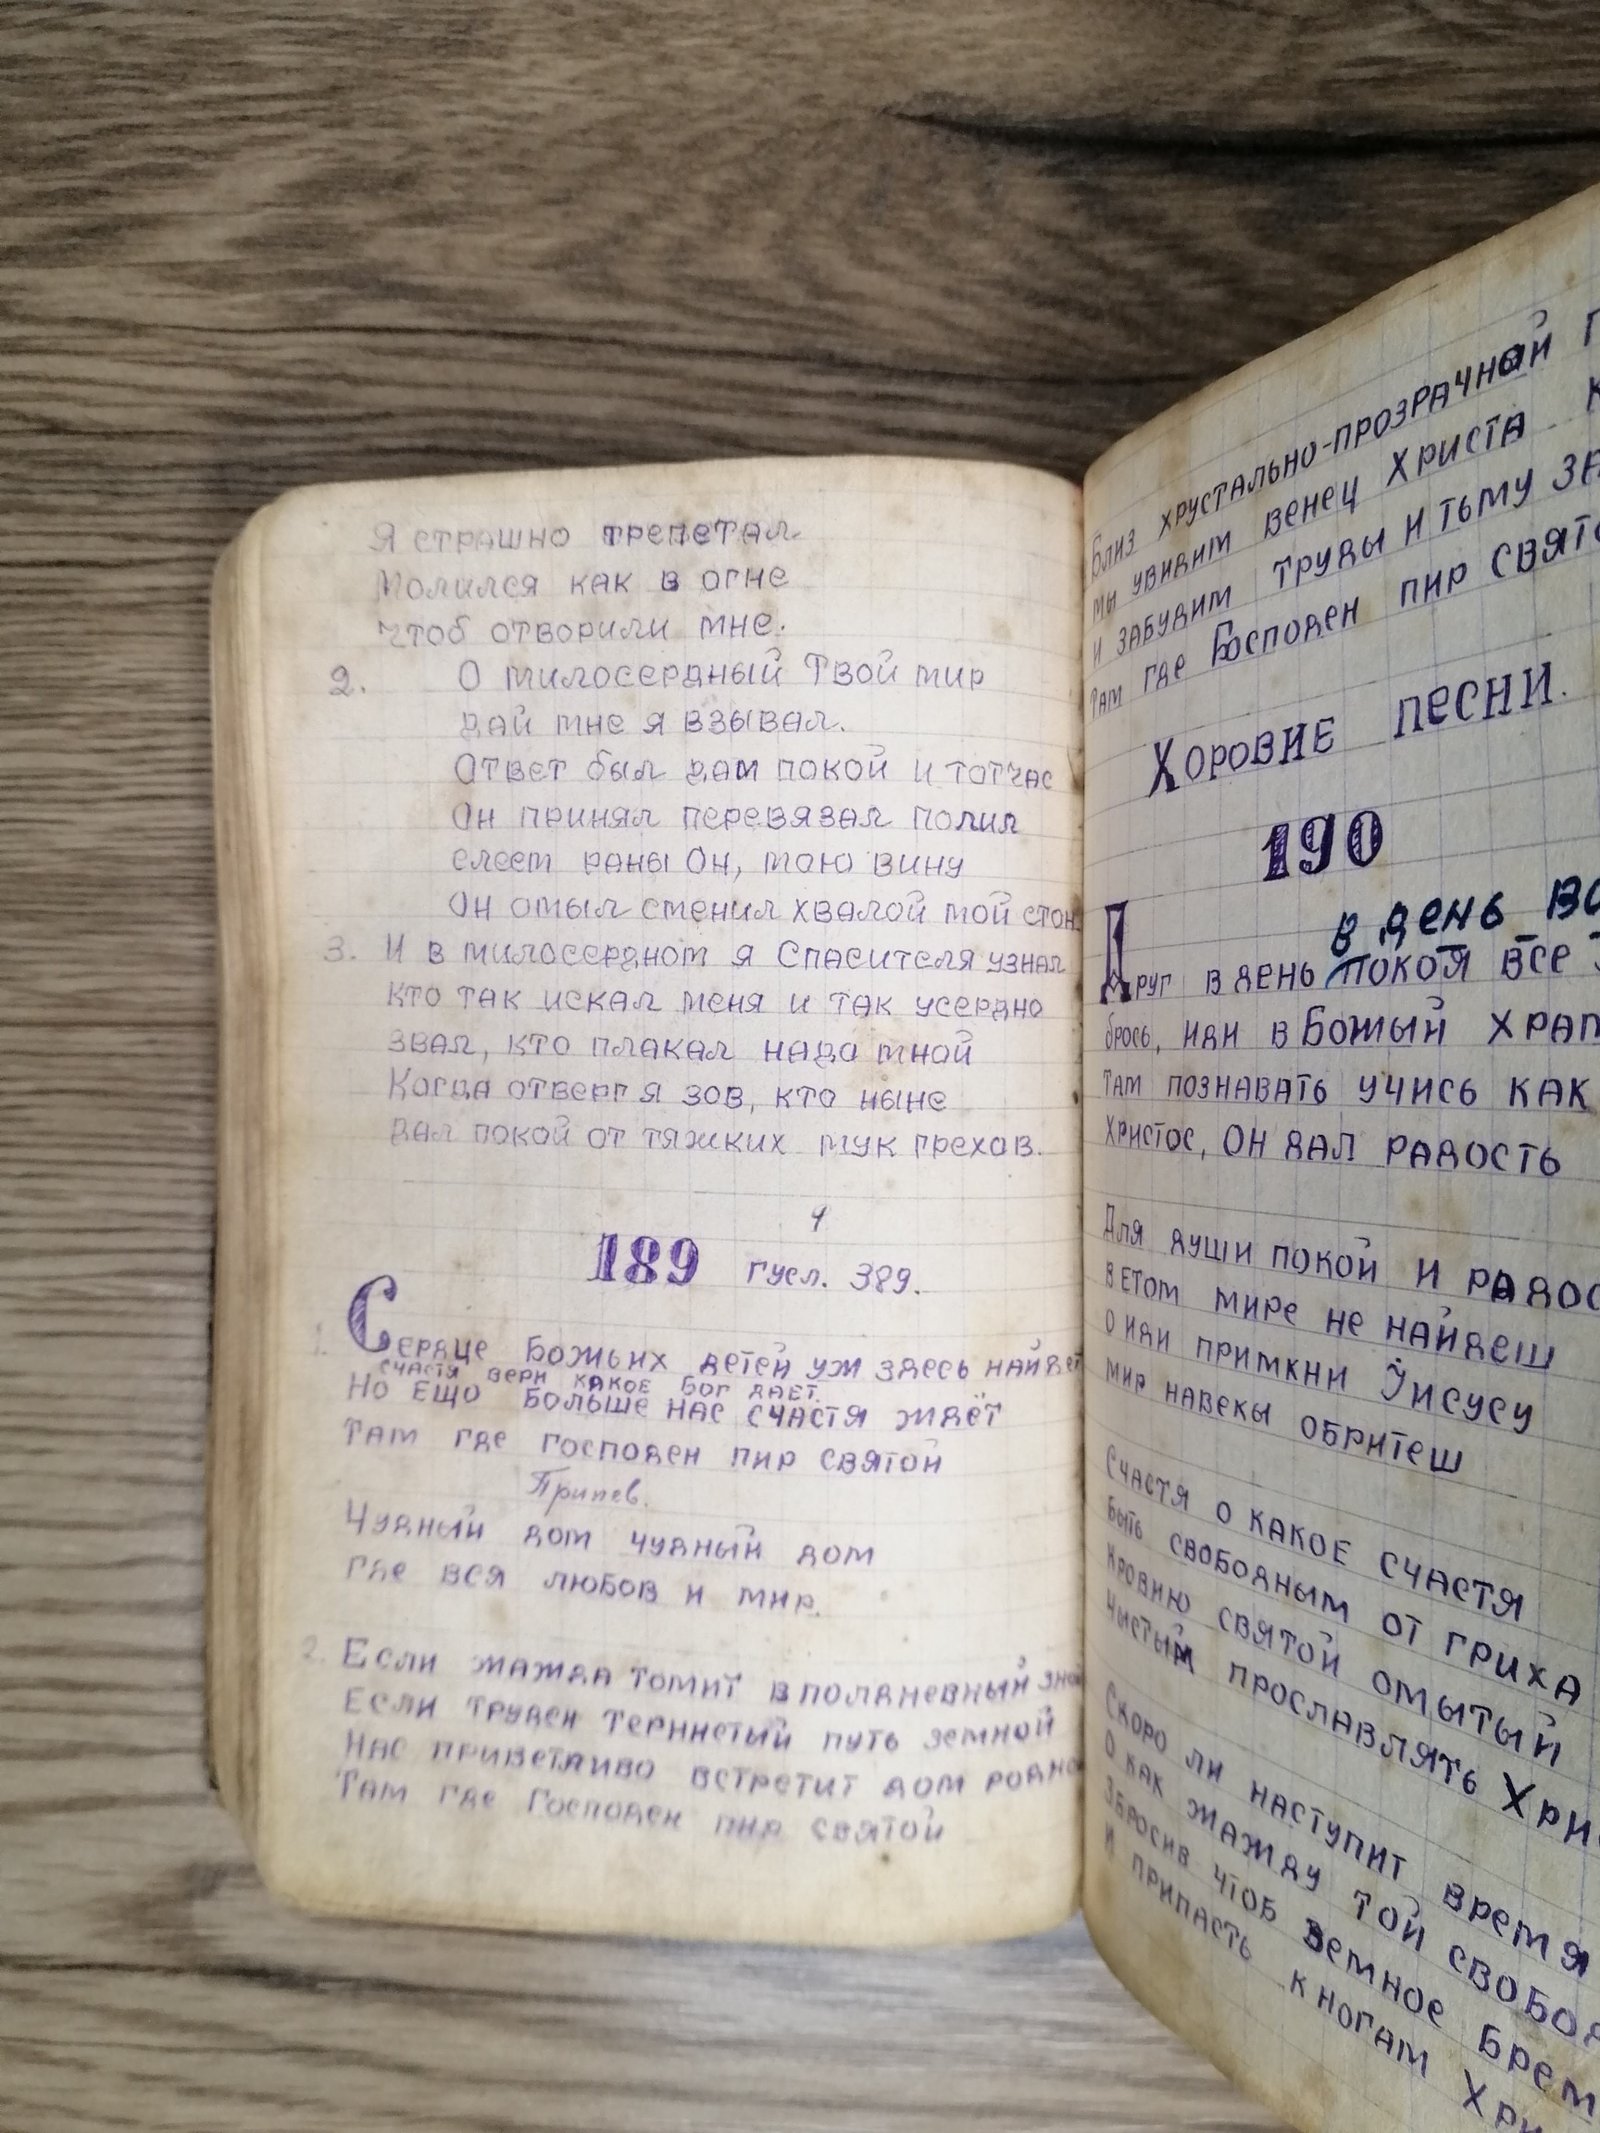 Я страшно трепетал
Молился как в огне
чтоб отворили мне.
2. О милосердный Твой мир
дай мне я взывал.
Ответ был дам покой и тотчас
Он принял перевязал полил
елеем раны Он, мою вину
Он омыл сменил хвалой мой стон
3. И в милосердном я Спасителя узнал
кто так искал меня и так усердно
звал, кто плакал надо мной
Когда отверг я зов, кто ныне
дал покой от тяжких мук грехов.
189 гусл. 389.
1. Сердце Божьих детей уж здесь найдет
счастя вери какое Бог дает.
Но ещо больше нас счастя ждёт
Там где господен пир святой
Припев.
Чудный дом чудный дом
где вся любов и мир.
2. Если жажда томит в полдневный
Если труден тернистый путь земной
Нас приветливо встретит дом
Там где Господен пир святой
Близ хрустально-прозрачной
мы увидим венец Христа
и забудим труды и тьму
там где Господен пир
Хоровие песни.
190
в день
Друг в день покоя все
брось, иди в Божый храм
там познавать учись как
христос, он дал радость
Для души покой и
в етом мире не найдеш
о иди примкни Иисусу
мир навеки обритеш
Счастя о какое счастя
быть свободным от гриха
кровию святой омытый
чистым прославлять
Скоро ли наступит время
О как жажду той
збросив чтоб земное
и припасть к ногам